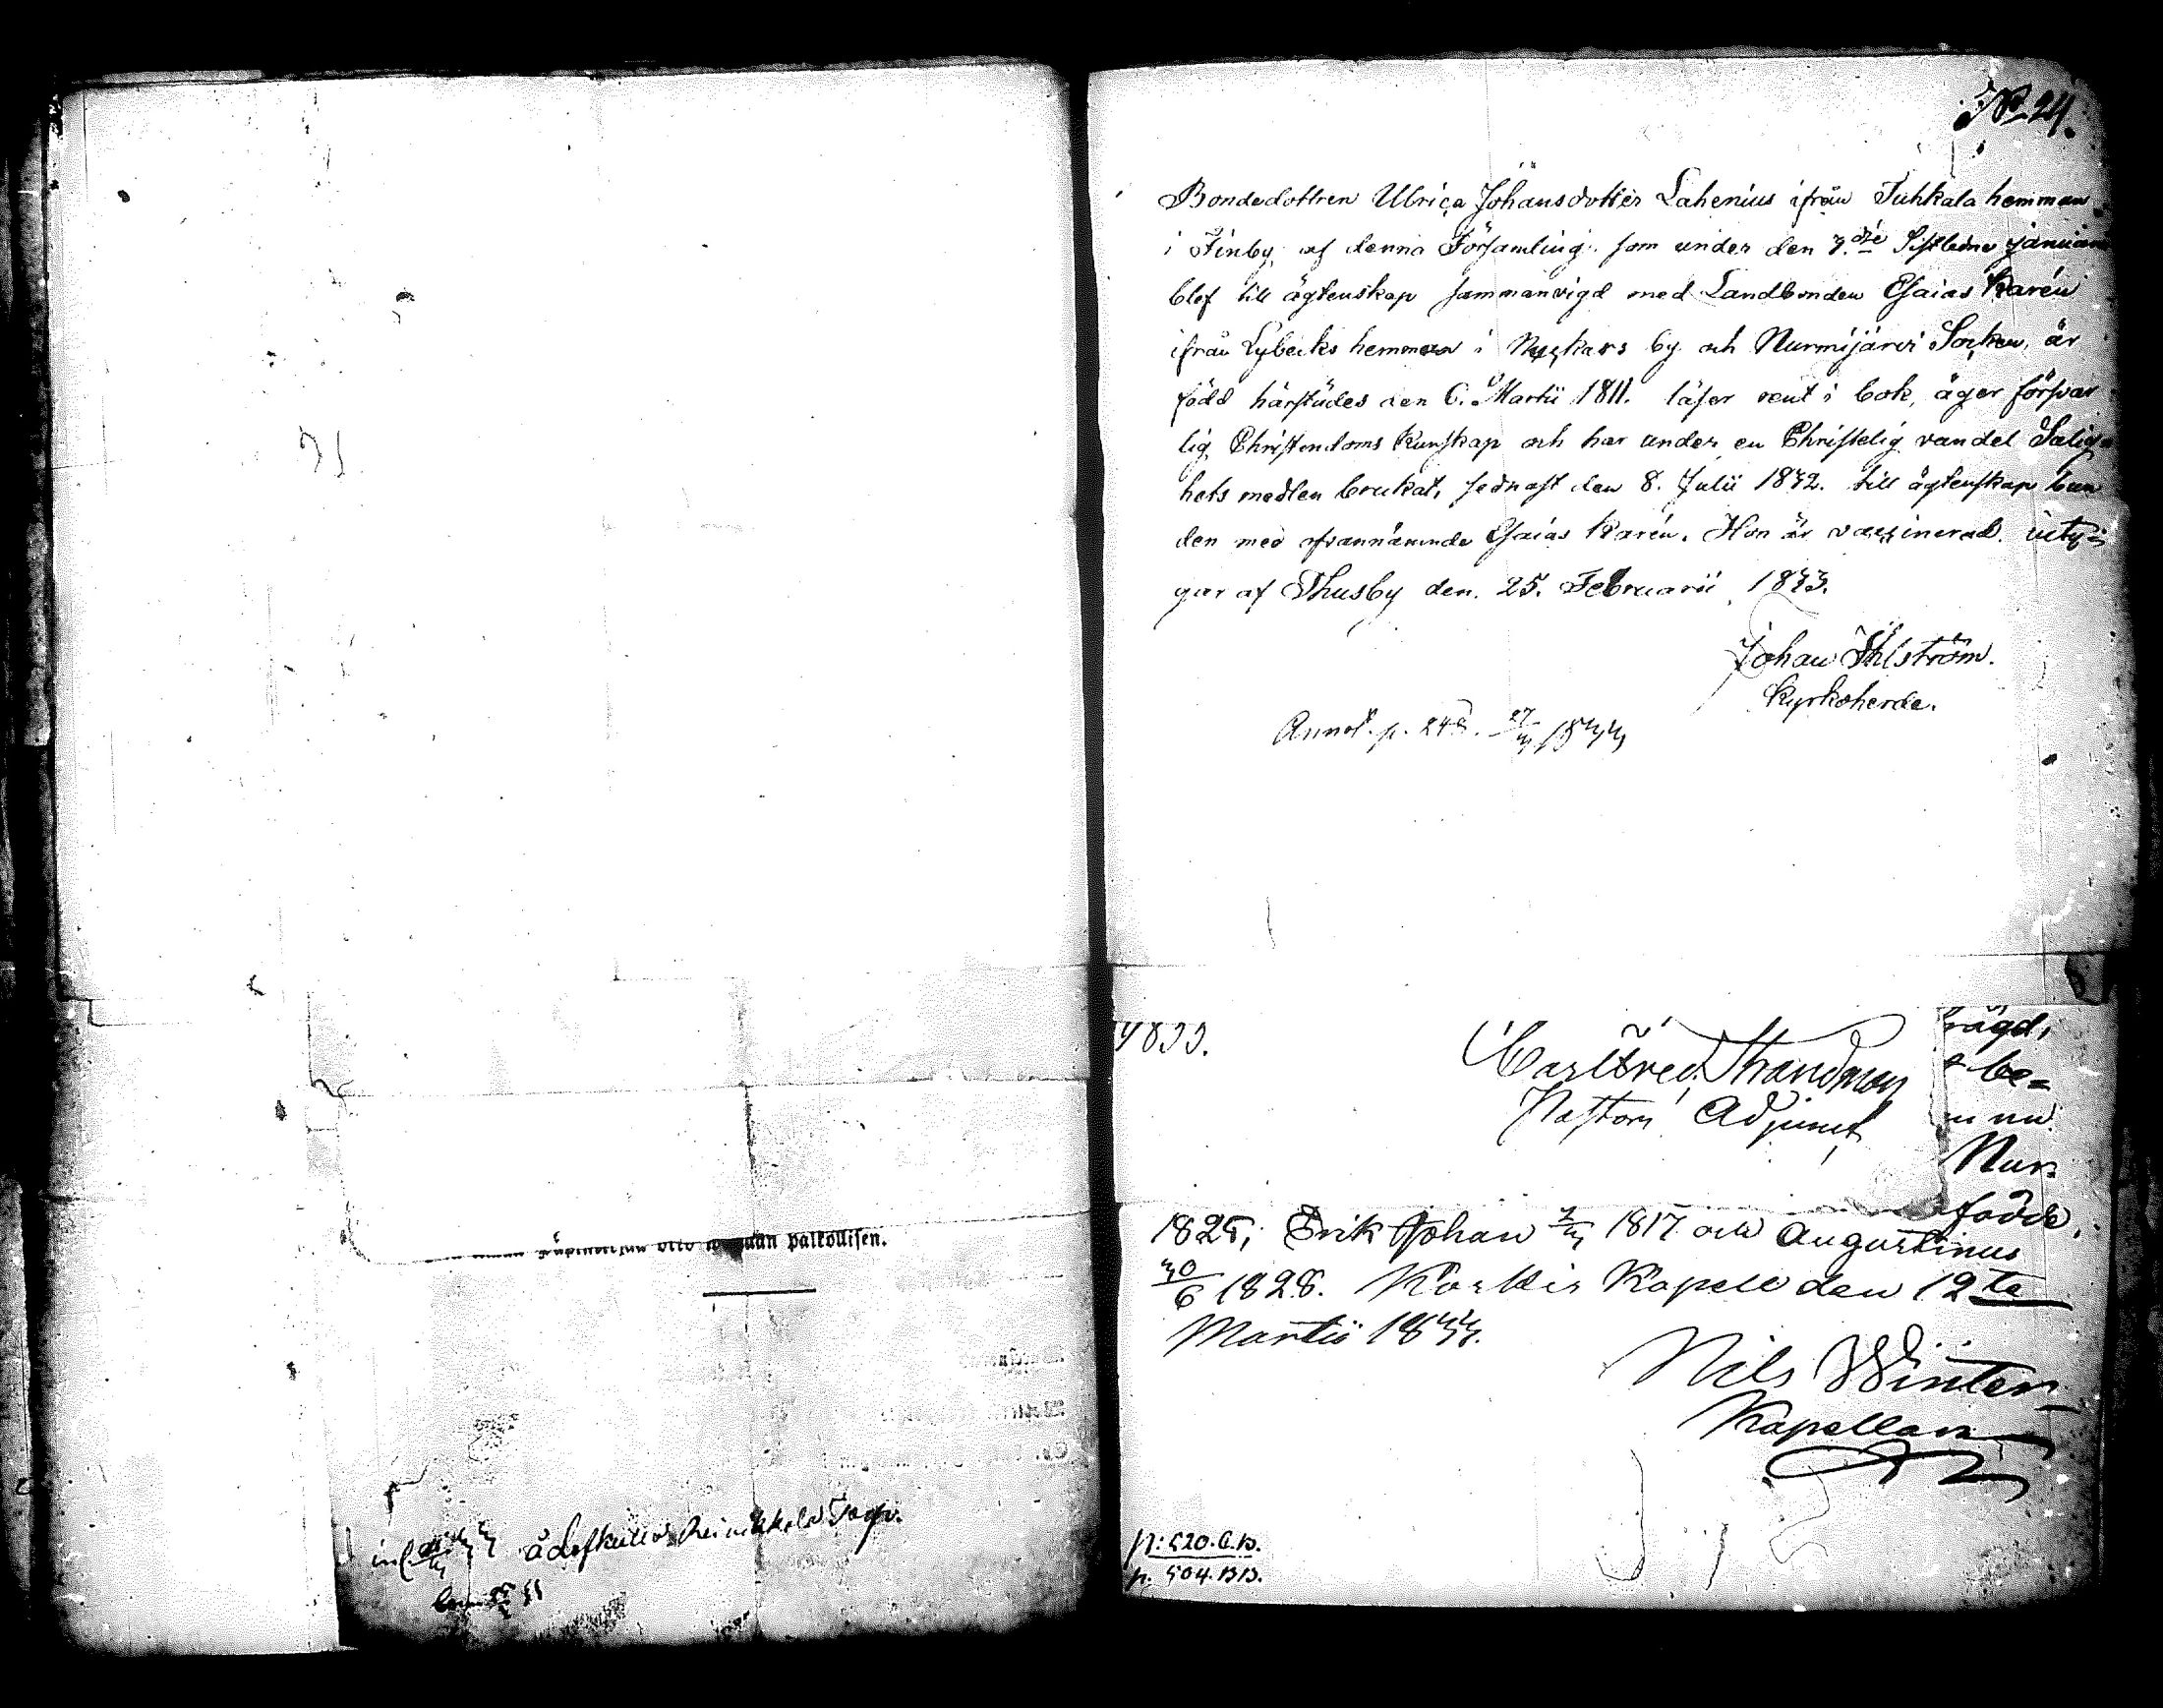 palkollisen.
inf.
å Lofkulla
No 24.
Bondedottren Ulrica Johansdotter Lahenius ifrån Tuhkala hemman
i Finby, af denna Församling, som under den 3.die Sistledne Januarii
blef till ägtenskap sammanvigd med Landbonden Esaias Karén
ifrån Lybecks hemman i Nackars by och Nurmijärvi Socken, är
född härstädes den 6. Martii 1811. läser rent i bok, äger försvar
lig Christendoms Kunskap och har under en Christelig vandel Salig
hets medlen brukat, sednast den 8. Julii 1832. till ägtenskap bun
den med ofvannämnde Esaias Karén. Hon är vaccinerad. bety
gar af Thusby den 25. Februarii 1833.
Johan Ahlström.
Kyrkoherde.
Annot. p. 248. 27/3 1833
1833.
Carl Fred. Strandman
Pastors Adjunct
be=
nu
Nur=
födde
1825, Erik Johan 1817 och Augustinus
30/6 1828. Korkis Kapell den 12te
Martii 1833.
Nils Winter
Kapellan
p: 520. C.B.
p. 504. B B.